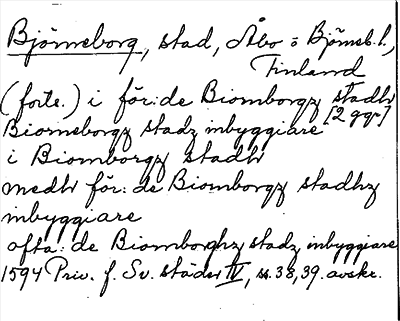 Björneborg, stad, Åbo o Björneb. l.,
Finland
(forte.) i för:de Biomborgz stadh
Biorneborgz stadz inbyggiare [2 ggr]
i Biomborgz stadh
medh för: de Biomborgz stadhz
inbyggiare
ofta: de Biomborghz stadz inbyggiare
1594 Priv. f. Sv. städer IV, ss. 38, 39. avskr.